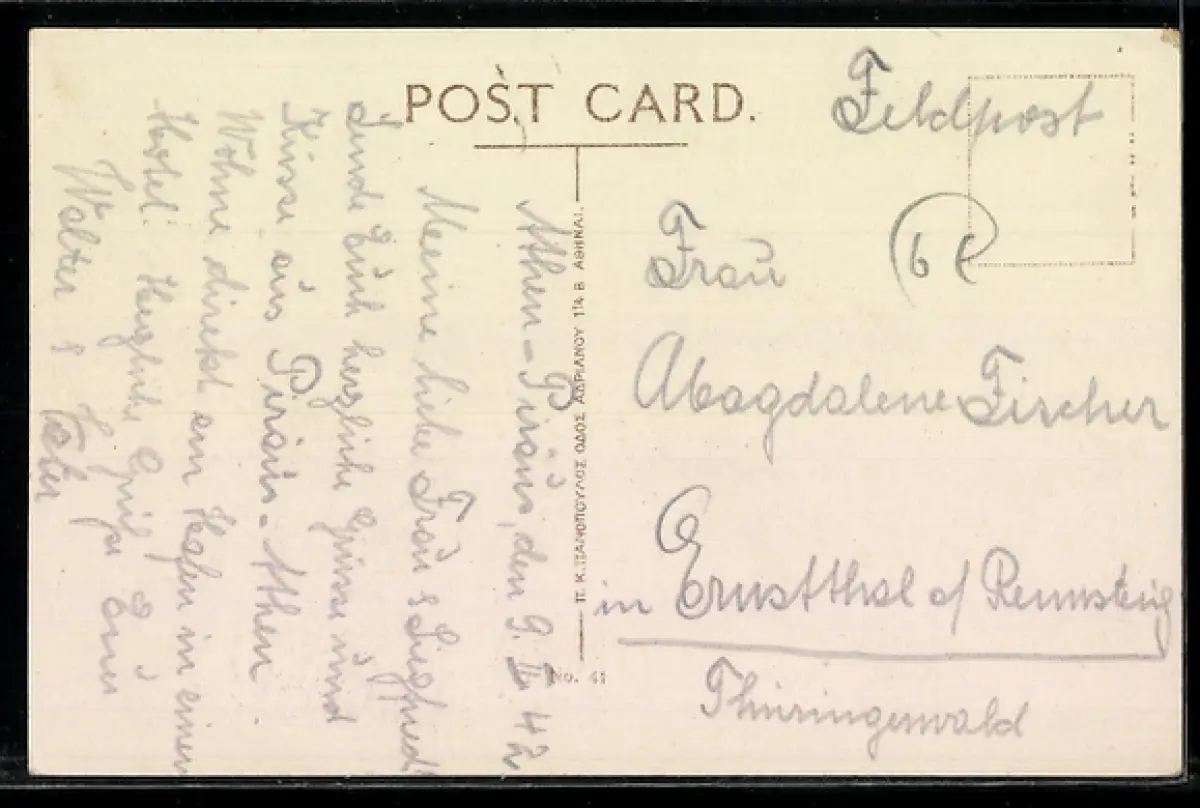 POST CARD.
Feldpost
6 €
Frau
Magdalene Fischer
in Ernstthal a/ Rennsteig
Thüringerwald
Π. Κ. ΠΑΝΟΠΟΥΛΟΣ ΟΔΟΣ ΑΔΡΙΑΝΟΥ 114 Β ΑΘΗΝΑΙ.
No. 41
Athen-Piräus, den 9. II. 42
Meine liebe Frau & Siegfried!
Sende Euch herzliche Grüsse und
Küsse aus Piräus-Athen.
Wohne direkt am Hafen in einem
Hotel. Herzliche Grüße Euer
Walter & Vater